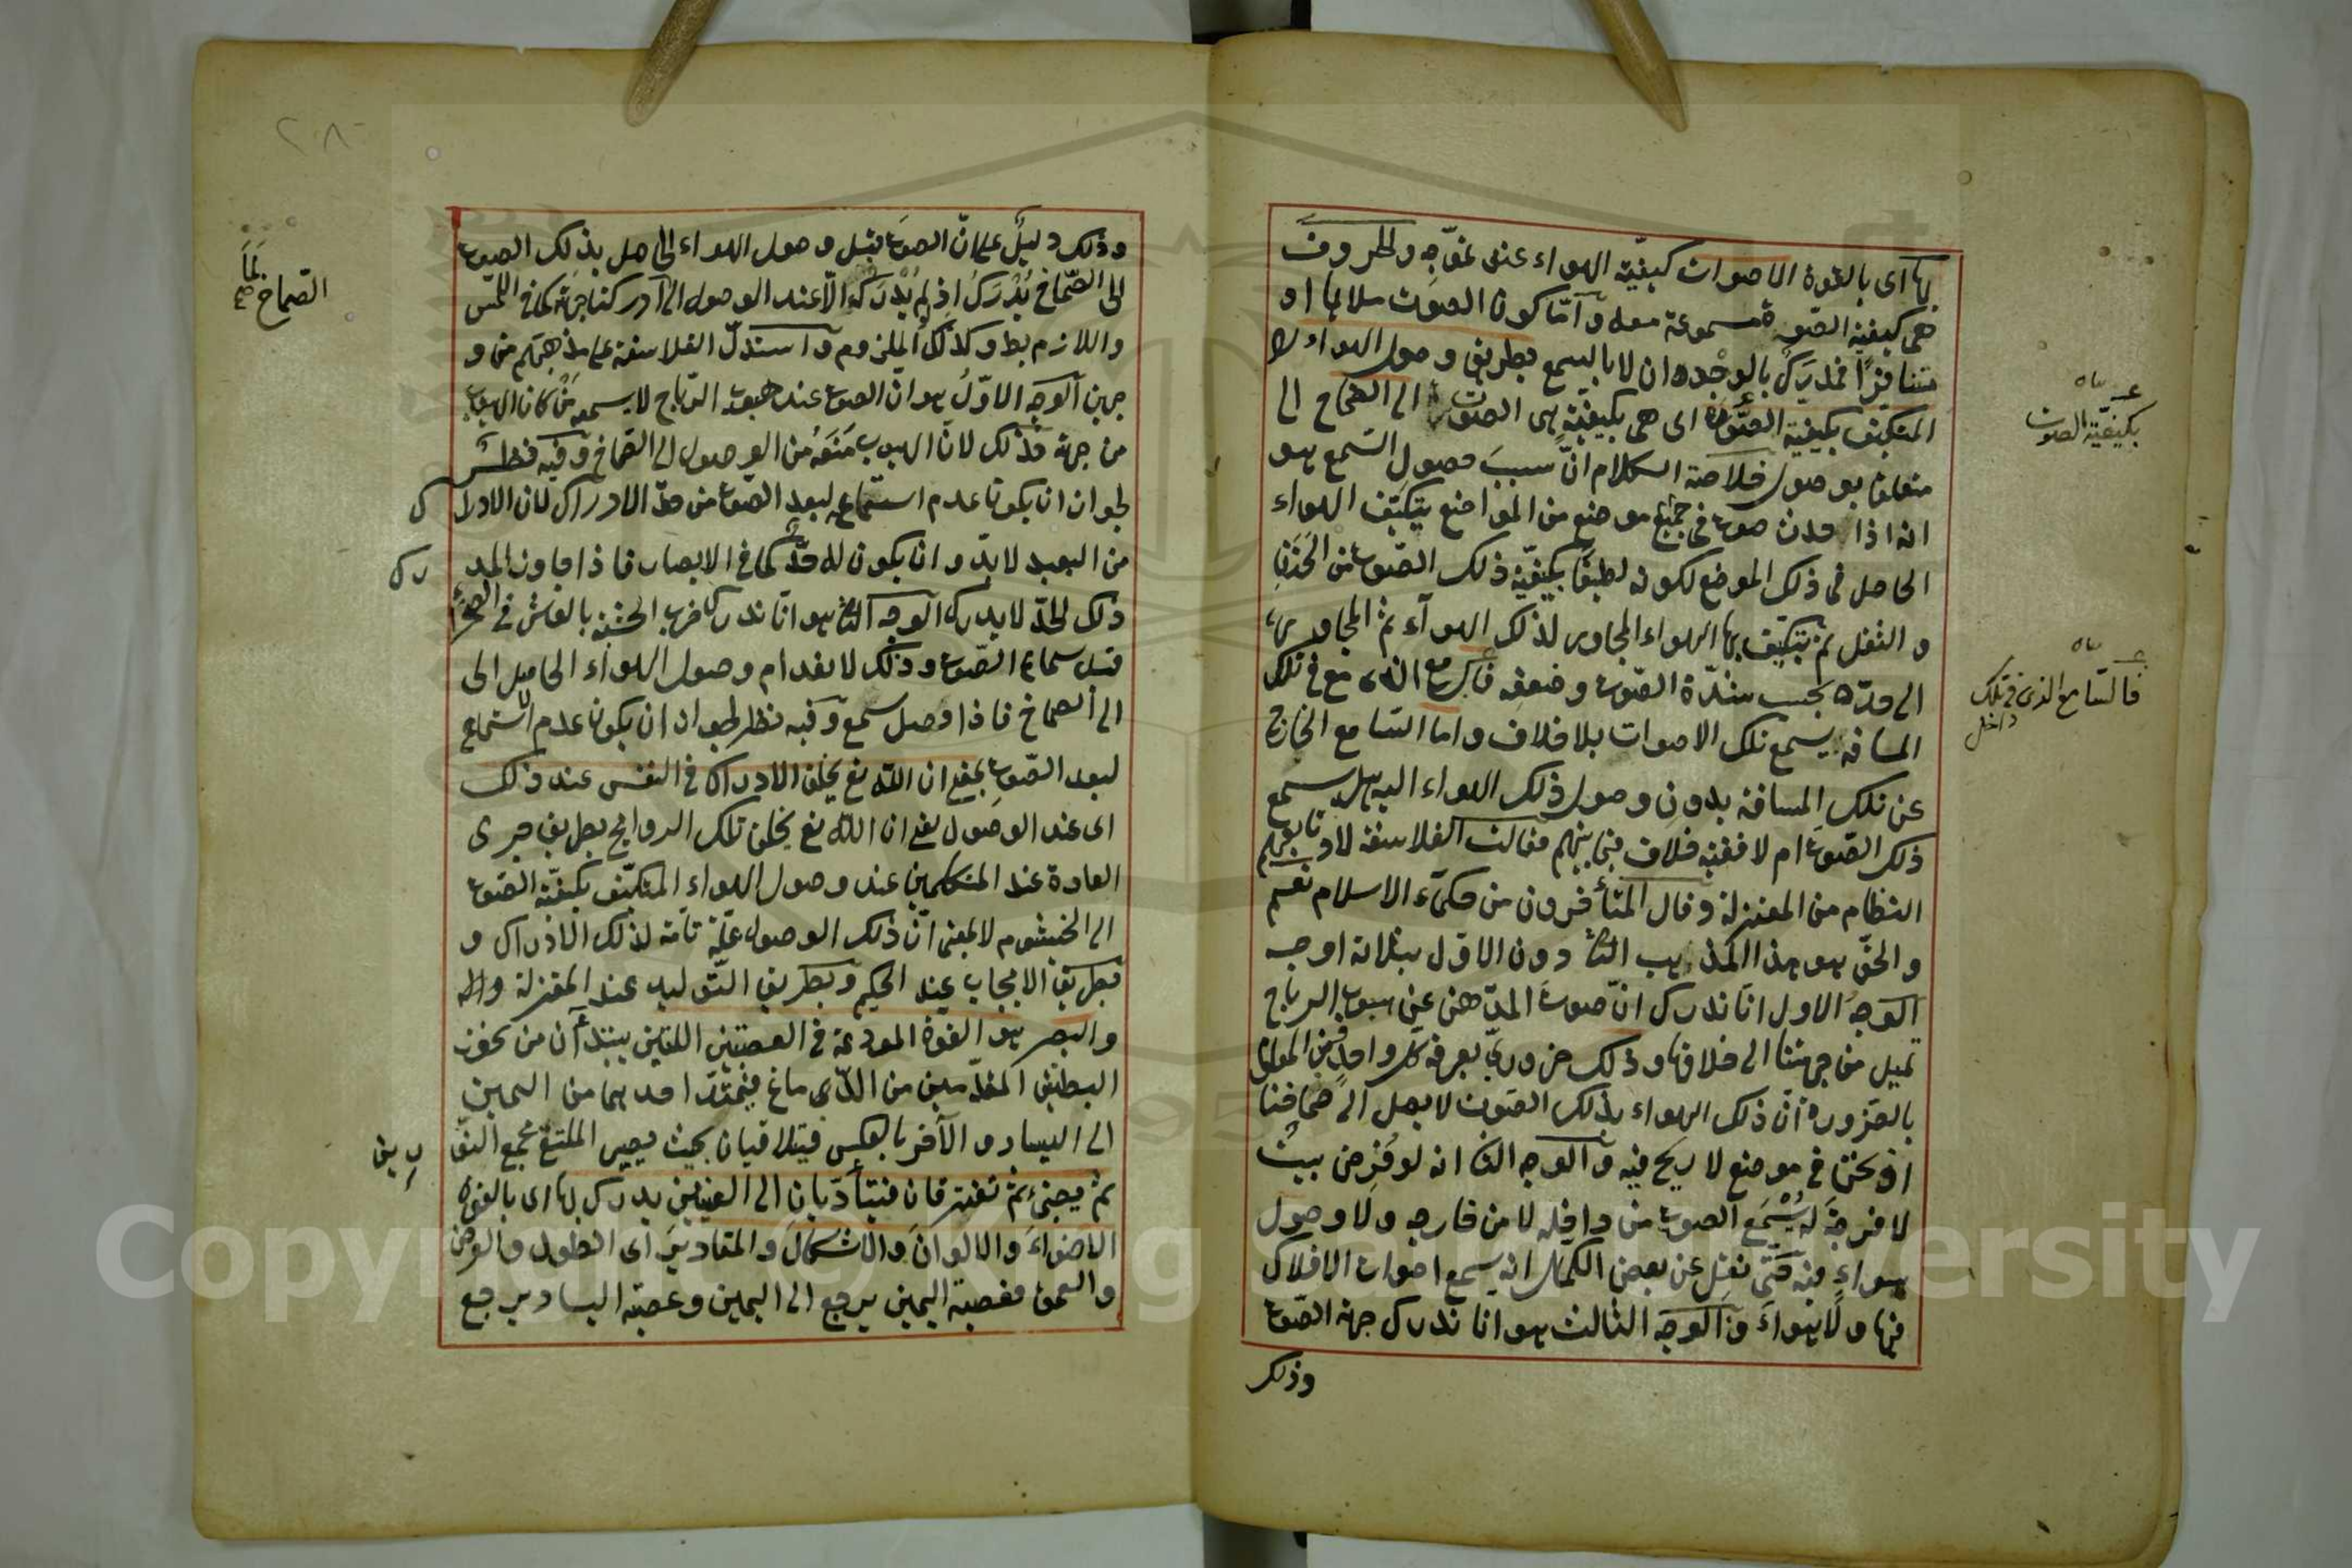 بها اى بالقوة الاصوات كيفية الهواء عند تموّجه والحروف
هى كيفية الصوت مسموعة معه وامّا كون الصوت ملايما او
متنافرًا فمدرك بالوجدان لا بالسمع بطريق وصول الهواء لا
المتكيف بكيفية الصوت اى هى بكيفية هى الصوت الى الصماخ الى
متعلق بوصول خلاصة الكلام انّ سببَ حصول السّمع هو
انه اذا حدث صوت فى موضع من المواضع يتكيّف الهواء
الحاصل فى ذلك الموضع لكونه لطيفا بكيفيّة ذلك الصّوت من
والثقل ثم يتكيّف بها الهواء المجاور لذلك الهوآء ثمّ المجاور
الى حدّه بحسب شدّة الصّوت وضعفه فالسامع الذى مع فى تلك
المسافة يسمع تلك الاصوات بلا خلاف واما السّامع الخارج
عن تلك المسافة بدون وصول ذلك الهواء اليه هل يسمع
ذلك الصّوت ام لا ففيه خلاف فيما بينهم فقالت الفلاسفة لا وتابعهم
النظام من المعتزلة وقال المتأخرون من حكمآء الاسلام نعم
والحقّ هو هذا المذهب الثا دون الاول بثلاثة اوجه
الوجهُ الاول انّا ندرك انّ صوتَ المؤذن عن هبوب الرياح
تميل من جهتنا الى خلافها وذلك ضرورىّ يعرفه كل واحد فمن المعلوم
بالضرورة انّ ذلك الهواء بذلك الصّوت لا يصل الى صماخنا
اذ نحن فى موضع لا ريح فيه والوجه الثا انه لو فُرض بيتٌ
لا فرجةَ له يُسْمَع الصوت من داخله لا من خارجه ولا وصول
هواءٍ منه حتّى نقل عن بعض الكمل انه يسمع اصوات الافلاك
فيها ولا هواءَ والوجه الثالث هو انا ندرك جهة الصّوت
وذلك
بكيفيّة الصوت
فالسّامع الذى فى تلك
داخل
٢٠٨
وذلك دليلٌ على انّ الصوت قبل وصول الهواء الحاصل بذلك الصوت
الى الصّماخ يُدْرَكُ اذ لم يُدْرَكْ الّا عند الوصول الى ادركنا جهته كما فى اللمس
واللازم بط وكذلك الملزوم واستدلّ الفلاسفة على مذهبهم من و
جهين الوجه الاوّل هو انّ الصوت عند هبوب الرّياح لا يسمعه من كان الهبوب
من جهة وذلك لانّ الهبوب مَنَعَهُ من الوصول الى الصّماخ وفيه نظر
لجواز ان يكون عدم استماعه لبعد الصّوت من حدّ الادراك لان الادرا
ك
من البعيد لا بدّ وان يكون له حدّ كما فى الابصار فاذا جاوز المد
رك
ذلك الحدّ لا يدرك الوجه الثا هو انّا ندرك ضرب الخشبة بالفأس فى الصحراء
قبل سماع الصّوت وذلك لانعدام وصول الهواء الحامل الى
الى الصماخ فاذا وصل سمع وفيه نظر لجواز ان يكون عدم الاستماع
لبعد الصّوت بمعنى ان اللّه تع يخلق الادراك فى النفس عند ذلك
اى عند الوصول يعنى ان اللّه تع يخلق تلك الروايح بطريق جرى
العادة عند المتكلمين عند وصول الهواء المتكيّف بكيفيّة الصّوت
الى الخيشوم لا بمعنى انّ ذلك الوصول علّة تامّة لذلك الادراك و
بطريق الايجاب عند الحكيم وبطريق التّوليد عند المعتزلة
والبصر هو القوة المودعة فى العصبتين اللتين يبتدآن من تحت
البطنين المقدّمين من الدّماغ فيمتدّ احدهما من اليمين
الى اليسار والآخر بالعكس فيتلاقيان بحيث يصير الملتقى مجمع النو
رين
ثم تفترقان فتتأدّيان الى العينين يدرك بها اى بالقوة
الاضواءَ والالوانَ والاشكالَ والمقاديرَ اى الطول والعرض
والعمق فعصبة اليمين يرجع الى اليمين وعصبة اليسار يرجع
الصّماخ
صح